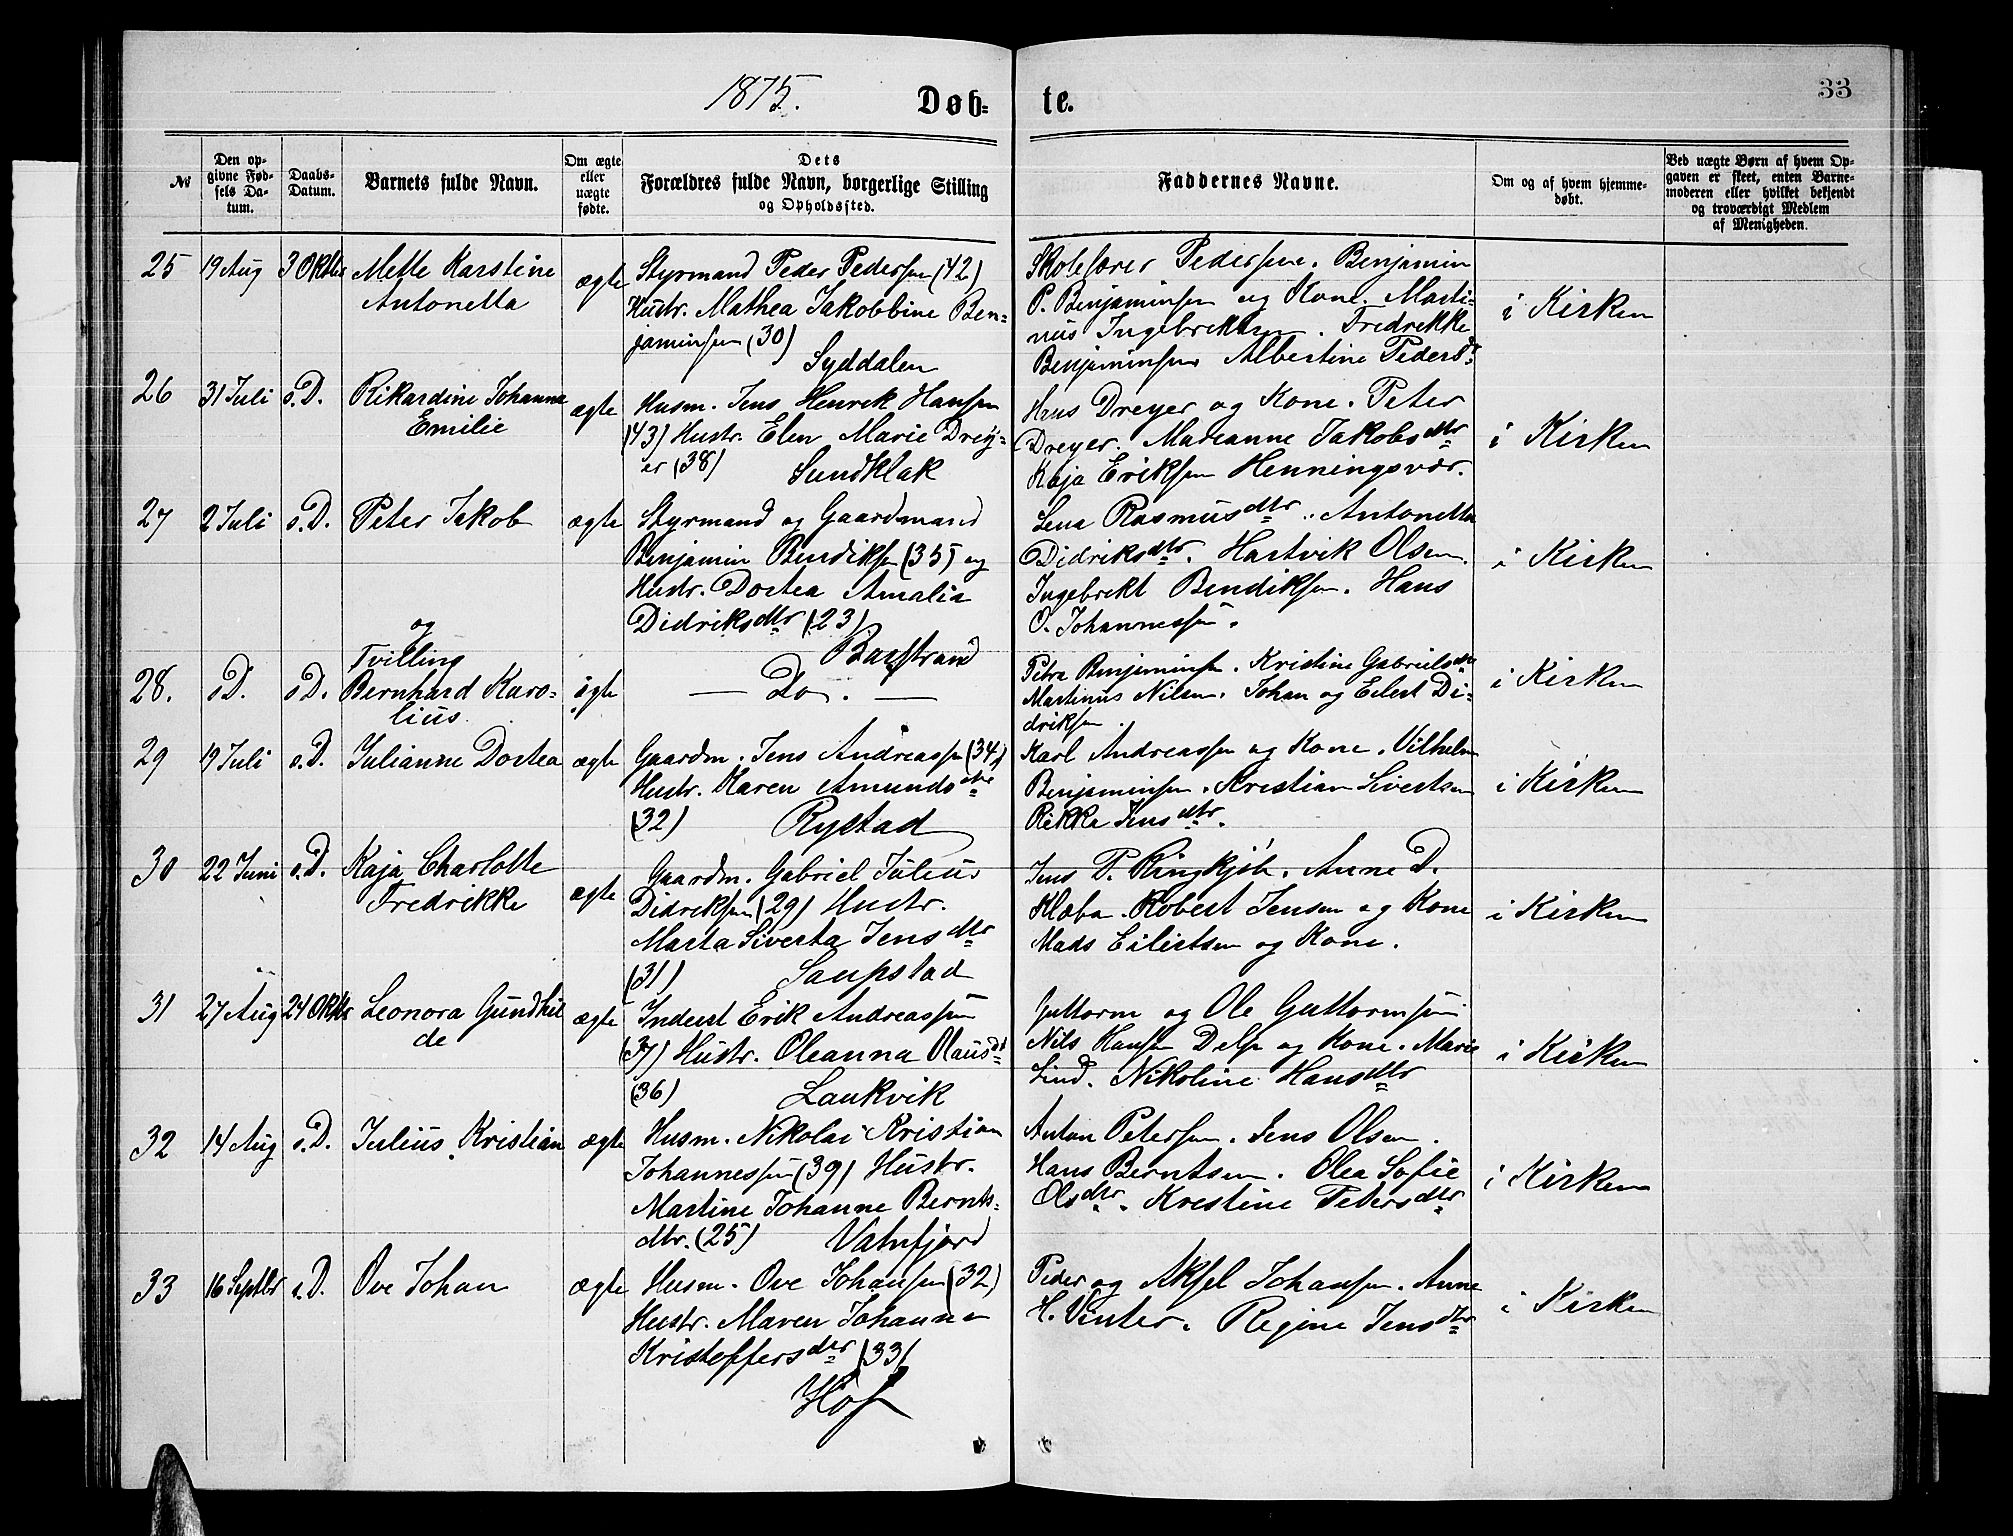 1875.
Døb- te.
33
№
Den op-
givne Fød-
sels Da-
tum.
Daabs-
Datum.
Barnets fulde Navn.
Om ægte
eller
uægte
fødte.
Dets
Forældres fulde Navn, borgerlige Stilling
og Opholdssted.
Faddernes Navne.
Om og af hvem hjemme-
døbt.
Ved uægte Børn af hvem Op-
gaven er skeet, enten Barne-
moderen eller hvilket bekjendt
og troværdigt Medlem
af Menigheden.
25 19 Aug 3 Oktbr Mette Karstine
Antonetta
ægte
Styrmand Peder Pedersen (42)
Hustr. Mathea Jakobbine Ben-
jaminsen (30)
Syddalen
Skolelærer Pedersen. Benjamin
P. Benjaminsen og Kone. Marti-
nus Ingebrektsen. Fredrikke
Benjaminsen Albertine Pedersd.
i Kirken
26 31 Juli s.D. Rikardine Johanna
Emilie
ægte
Husm. Jens Henrik Hansen
(43) Hustr. Elen Marie Drey-
er (38) Sundklak
Hans Dreyer og Kone. Peter
Dreyer. Marianne Jakobsdtr
Kaja Eriksen Henningsvær.
i Kirken
27 2 Juli s.D. Peter Jakob
ægte
Styrmand og Gaardmand
Benjamin Bendiksen (35) og
Hustr. Dortea Amalia
Didriksdtr (23)
Barstrand
Lena Rasmusdtr. Antonetta
Didriksdtr. Hartvik Olsen.
Ingebrekt Bendiksen. Hans
O. Johannessen.
i Kirken
og
Tvilling
28. s.D. s.D. Bernhard Karo-
lius.
ægte
— Do. —
Petra Benjaminsen. Kristine Gabrielsdtr
Martinus Nilsen. Johan og Eilert Di-
driksen.
i Kirken
29 19 Juli s.D. Julianne Dortea
ægte
Gaardm. Jens Andreassen (34)
Hustr. Karen Amundsdtr
(32) Rystad
Karl Andreassen og Kone. Vilhelm
Benjaminsen. Kristian Sivertsen
Rikke Jensdtr.
i Kirken
30 22 Juni s.D. Kaja Charlotte
Fredrikke
ægte
Gaardm. Gabriel Julius
Didriksen (29) Hustr.
Marta Siverta Jensdtr
(31) Saupstad
Jens P. Ringkjøb. Anne D.
Klæbo. Robert Jensen og Kone
Mads Eilertsen og Kone.
i Kirken
31 27 Aug 24 Oktbr Leonora Gundhil
de
ægte
Inderst Erik Andreassen
(37) Hustr. Oleanna Olausdt
(36) Laukvik
Guttorm og Ole Guttormsen
Nils Hansen Delp og Kone. Marie
Lind. Nikoline Hansdtr
i Kirken
32 14 Aug s.D. Julius Kristian
ægte
Husm. Nikolai Kristian
Johannessen (39) Hustr.
Martine Johanne Bernts-
dtr. (25) Vatnfjord
Anton Petersen. Jens Olsen.
Hans Berntsen. Olea Sofie
Olsdtr. Kristine Petersdtr
i Kirken
33 16 Septbr s.D. Ove Johan
ægte
Husm. Ove Johansen (32)
Hustr. Maren Johanna
Kristoffersdtr (33)
Hof
Peder og Aksel Johansen. Anne
H. Vinter. Regine Jensdtr
i Kirken